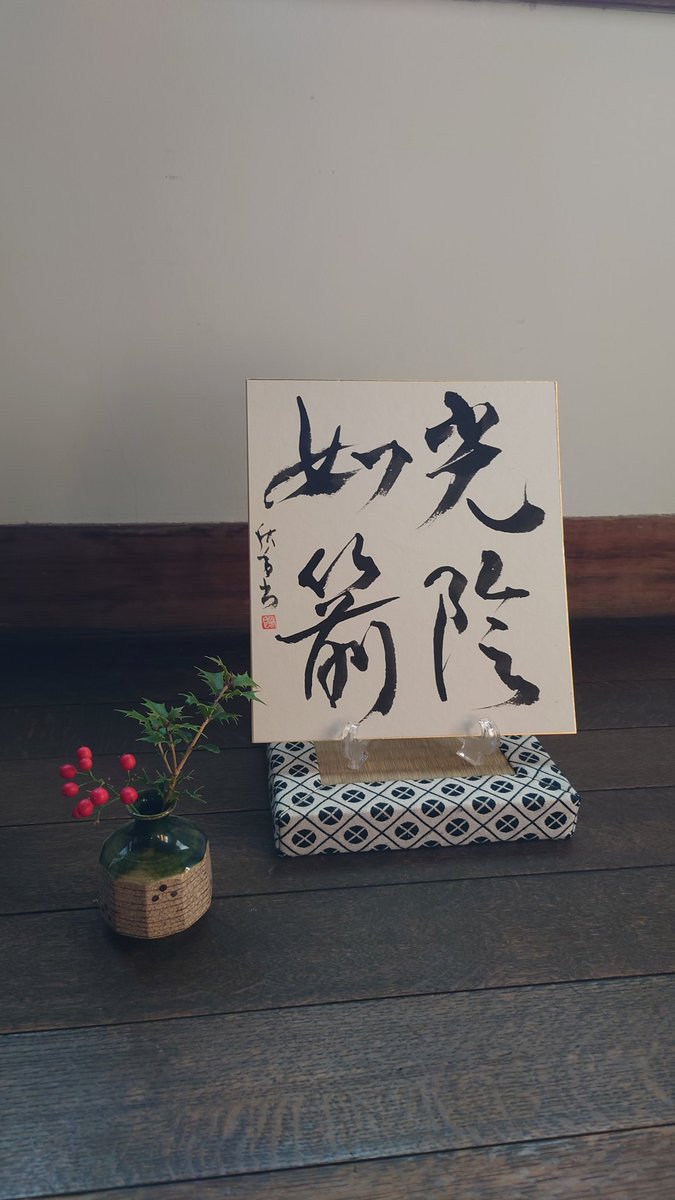 光陰
如箭